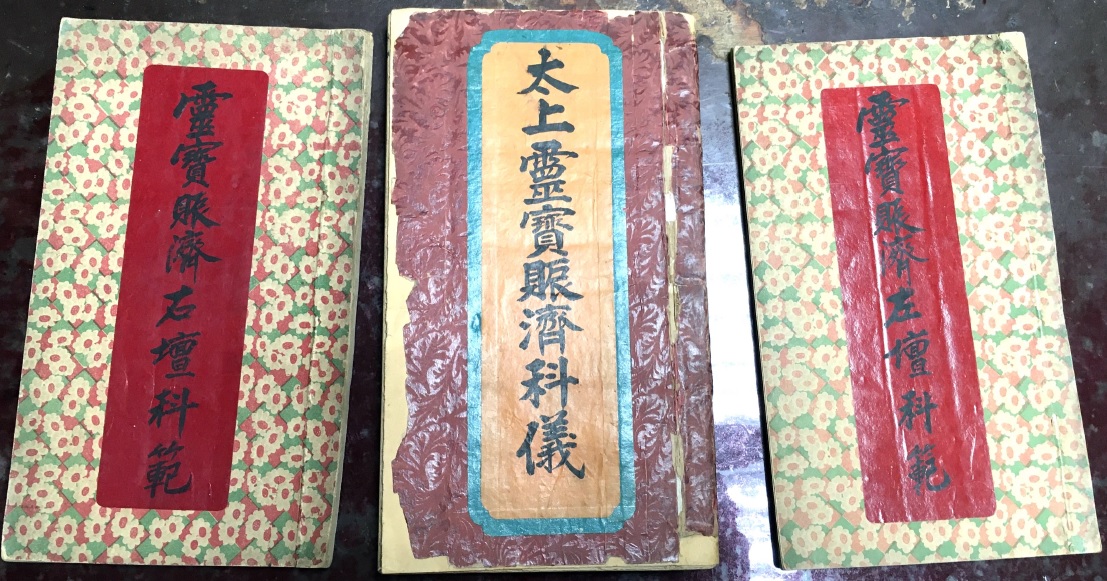 靈寶賑濟左壇科範
太上靈寶賑濟科儀
靈寶賑濟右壇科範